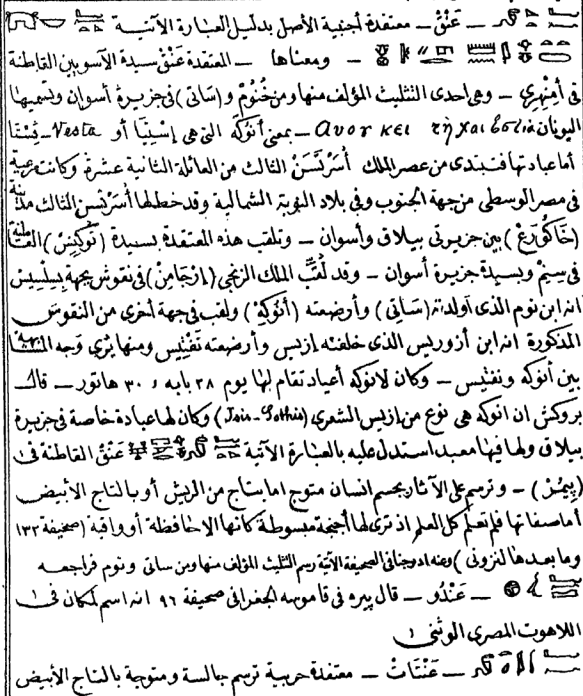 ـ عَنْقْ ـ معتقدة أجنبية الأصل بدليل العبارة الآتية
ـ ومعناها ـ المعتقدة عَنْقْ سيدة الآسويين القاطنة
فى أمِنْهِرِى ـ وهى احدى التثليث المؤلف منها ومن خُنُومْ و (سَاتِى) فى جزيرة أسوان ويسميها
اليونان ανουκει τη και εστια ـ بمعنى أنوكه التى هى إستِيَا أو Vesta ـ فِسْتَا
أما عبادتها فتبتدى من عصر الملك أُسَرْتَسَنْ الثالث من العائلة الثانية عشرة وكانت مرعية
فى مصر الوسطى من جهة الجنوب وفى بلاد النوبة الشمالية وقد خطط لها أُسَرْتَسن الثالث مدينة
(خَاكُورَعْ) بين جزيرتى بيلاق وأسوان ـ وتلقب هذه المعتقدة بسيدة (تُوكِينْسْ) القاطنة
فى سِيتِمْ وبسيدة جزيرة أسوان ـ وقد لُقِّبَ الملك الزنجى (ارْجَامِنْ) فى نقوش بجهة بِسِلْبِيسْ
انه ابن نوم الذى أولدته (سَاتِى) وأرضعته (أنُوكِهْ) ولقب فى جهة أخرى من النقوش
المذكورة انه ابن أزوريس الذى خلفته إزيس وأرضعته نَفْتِيس ومنها يُرى وجه المشابهة
بين أنوكه ونفتيس ـ وكان لانوكه أعياد تقام لها يوم ٢٨ بابه و ٣٠ هاتور ـ قال
بروكش ان انوكه هى نوع من ازيس الشعرى (Isis-Sothis) وكان لها عبادة خاصة فى جزيرة
بيلاق ولها فيها معبد استدل عليه بالعبارة الآتية عَنْقْ القاطنة فى
(بِيمُرْ) ـ وترسم على الآثار بجسم انسان متوج اما بتاج من الريش أو بالتاج الأبيض
أما صفاتها فلم تعلم كل العلم اذ ترى لها أجنحة مبسوطة كأنها الاحافظة أو واقية (صحيفة ١٣٢
وما بعدها لنزونى) وقد ادرجنا فى الصحيفة الآتية رسم التثليث المؤلف منها ومن ساتى ونوم فراجعه
ـ عَنْدُو ـ قال بيره فى قاموسه الجغرافى صحيفة ٩٦ انه اسم لمكان فى
اللاهوت المصرى الوثنى
ـ عَنْتَاتْ ـ معتقدة حربية ترسم جالسة ومتوجة بالتاج الأبيض